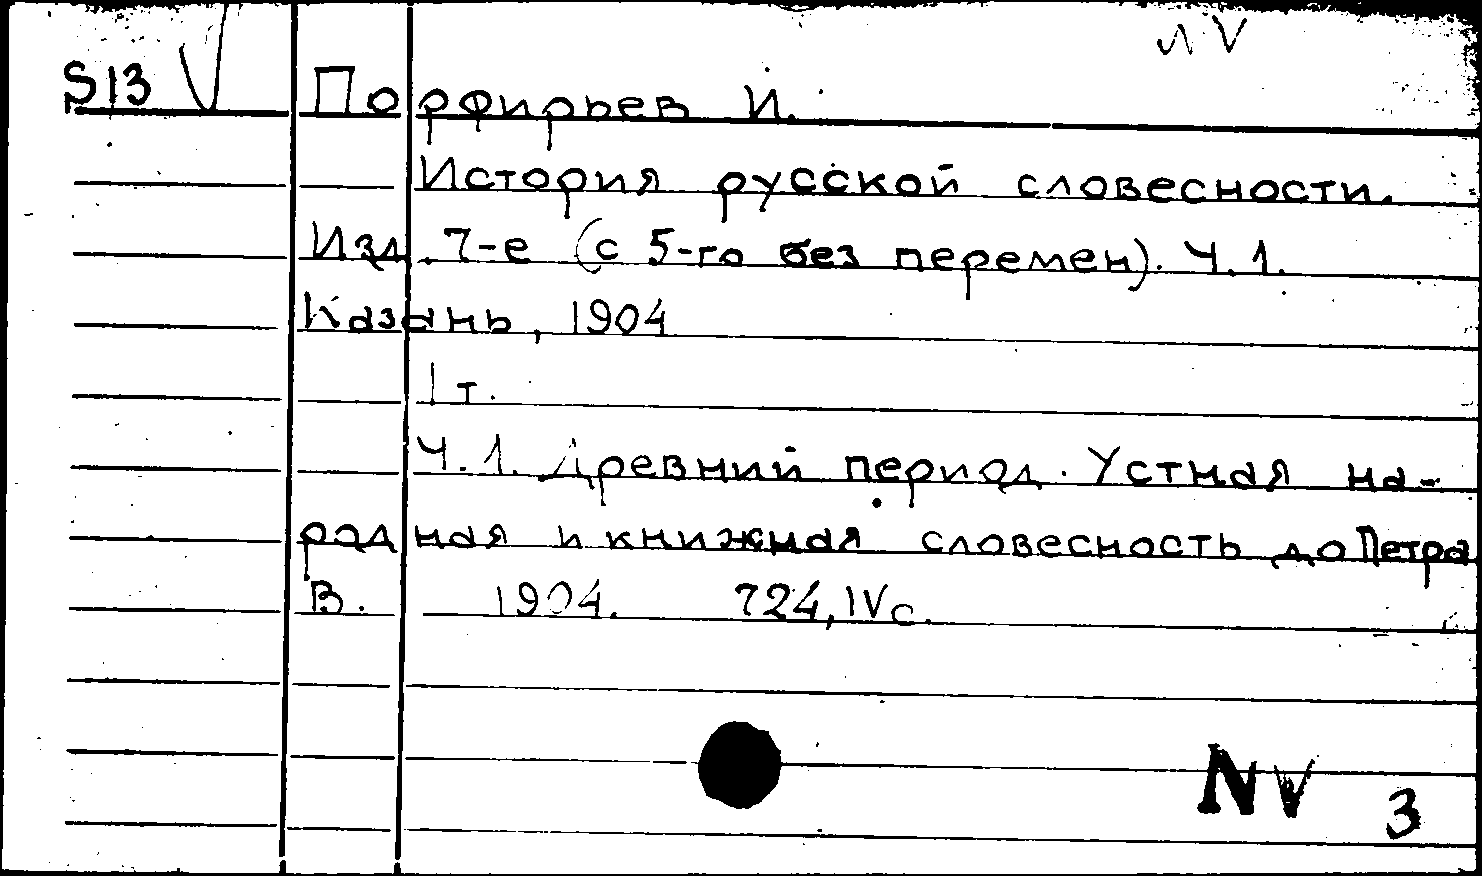 NV
S13 V Порфирьев И.
История русской словесности.
Изд. 7-е (с 5-го без перемен). Ч.1.
Казань, 1904
1 т.
Ч.1. Древний период. Устная на-
родная и книжная словесность до Петра
В. 1904. 724, IV с.
NV 3